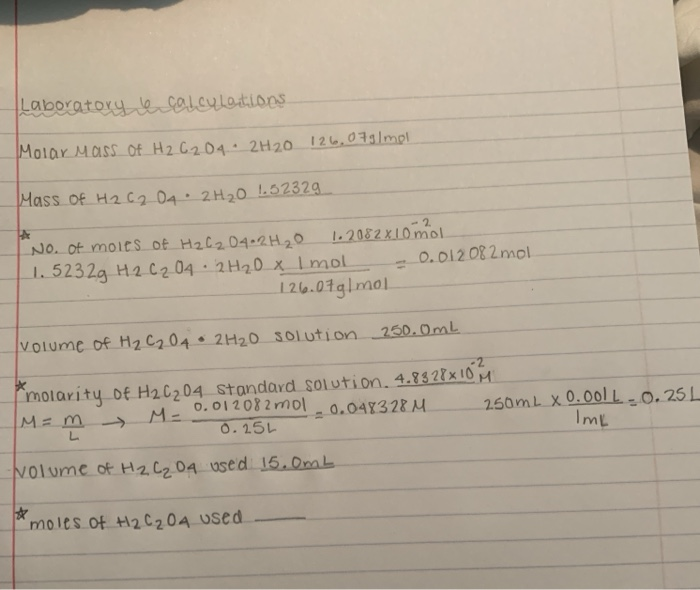 Laboratory 6 calculations
Molar Mass of H2C2O4 · 2H2O 126.07g/mol
Mass of H2C2O4 · 2H2O 1.5232g
* No. of moles of H2C2O4·2H2O 1.2082x10⁻² mol
1.5232g H2C2O4 · 2H2O x 1 mol / 126.07g/mol = 0.012082mol
volume of H2C2O4 • 2H2O solution 250.0mL
*molarity of H2C2O4 standard solution. 4.8328x10⁻² M
M = m/L → M = 0.012082mol / 0.25L = 0.048328M 250mL x 0.001L / 1mL = 0.25L
volume of H2C2O4 used 15.0mL
*moles of H2C2O4 used